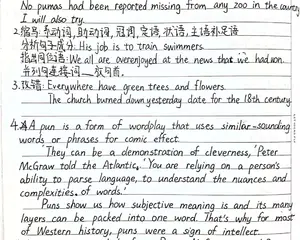 No pumas had been reported missing from any zoo in the country
I will also try.
2.编写:系动词,助动词,冠词,定语,状语,主语补足语
分析句子成分: His job is to train swimmers.
指出同位语: We all are overjoyed at the news that we had won.
并列句连接词——一致句首.
3.改错: Everywhere have green trees and flowers.
The church burned down yesterday date for the 18th century.
4. A pun is a form of wordplay that uses similar-sounding
words or phrases for comic effect.
They can be a demonstration of cleverness, 'Peter
McGraw told the Atlantic, 'You are relying on a person's
ability to parse language, to understand the nuances and
complexities of words.'
Puns show us how subjective meaning is and its many
layers can be packed into one word. That's why for most
of Western history, puns were a sign of intellect.